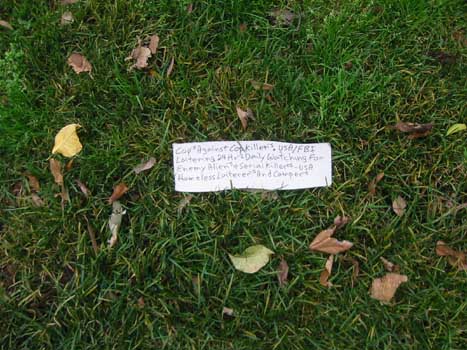 Cop's Against Cop Killer's, USA/FBI
Loitering 24 Hr's Daily Watching For
Enemy Alien's + Serial Killer's - USA
Homeless Loiterer's And Camper's